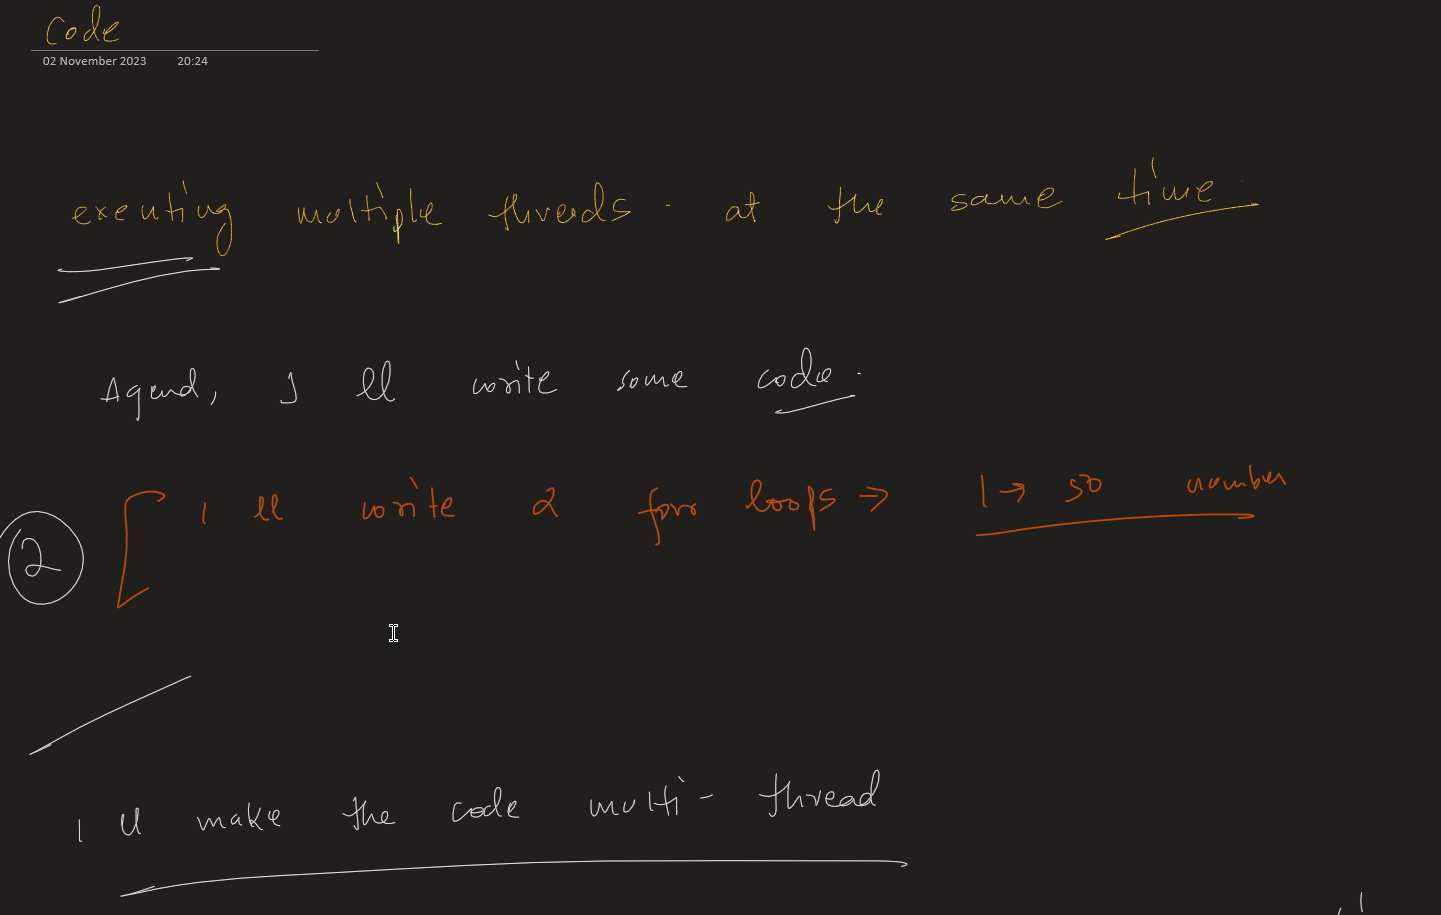 Code
02 November 2023 20:24
executing multiple threads. at the same time.
Agend, I ll write some code.
2 [ I ll write 2 for loops → 1 → 50 number
I ll make the code multi - thread